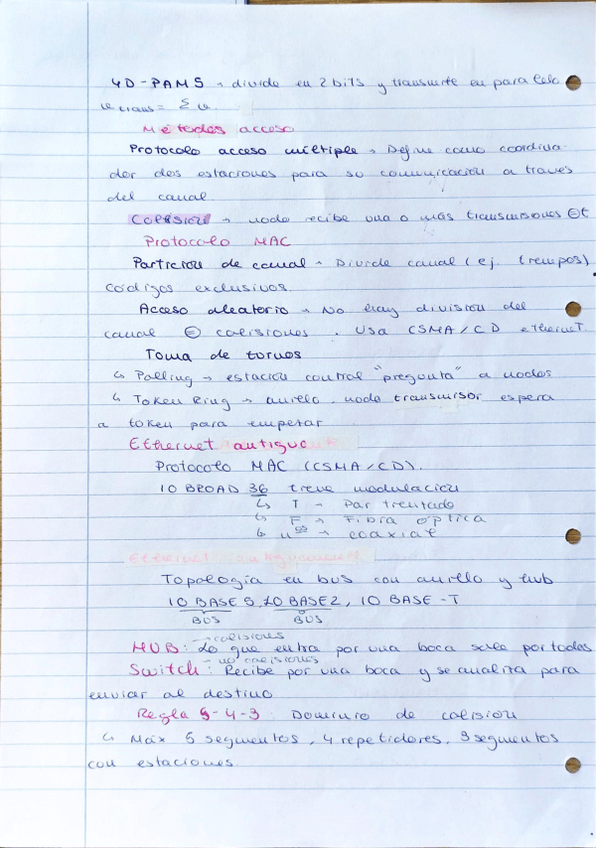 4D-PAM5 → divide en 2 bits y transmite en paralelo
Vtrans = Σ v.
Métodos acceso
Protocolo acceso múltiple → Define como coordina-
dor dos estaciones para su comunicación a través
del canal
Colisión → nodo recibe una o más transmisiones
Protocolo MAC
Partición de canal → Divide canal (ej. tiempos)
Códigos exclusivos
Acceso aleatorio → No hay división del
canal ⊖ colisiones. Usa CSMA/CD ethernet
Toma de turnos
↳ Polling → estación control "pregunta" a nodos
↳ Token Ring → anillo, nodo transmisor espera
a token para empezar
Ethernet antiguo
Protocolo MAC (CSMA/CD).
10 BROAD 36 tiene modulación
↳ T → Par trenzado
↳ F → Fibra óptica
↳ nºs → coaxial
Topología en bus con anillo y hub
10 BASE 5, 10 BASE2, 10 BASE-T
BUS BUS
→ colisiones
HUB: Lo que entra por una boca sale por todas
→ no colisiones
Switch: Recibe por una boca y se analiza para
enviar al destino
Regla 5-4-3: Dominio de colisión
↳ Max 5 segmentos, 4 repetidores, 3 segmentos
con estaciones.